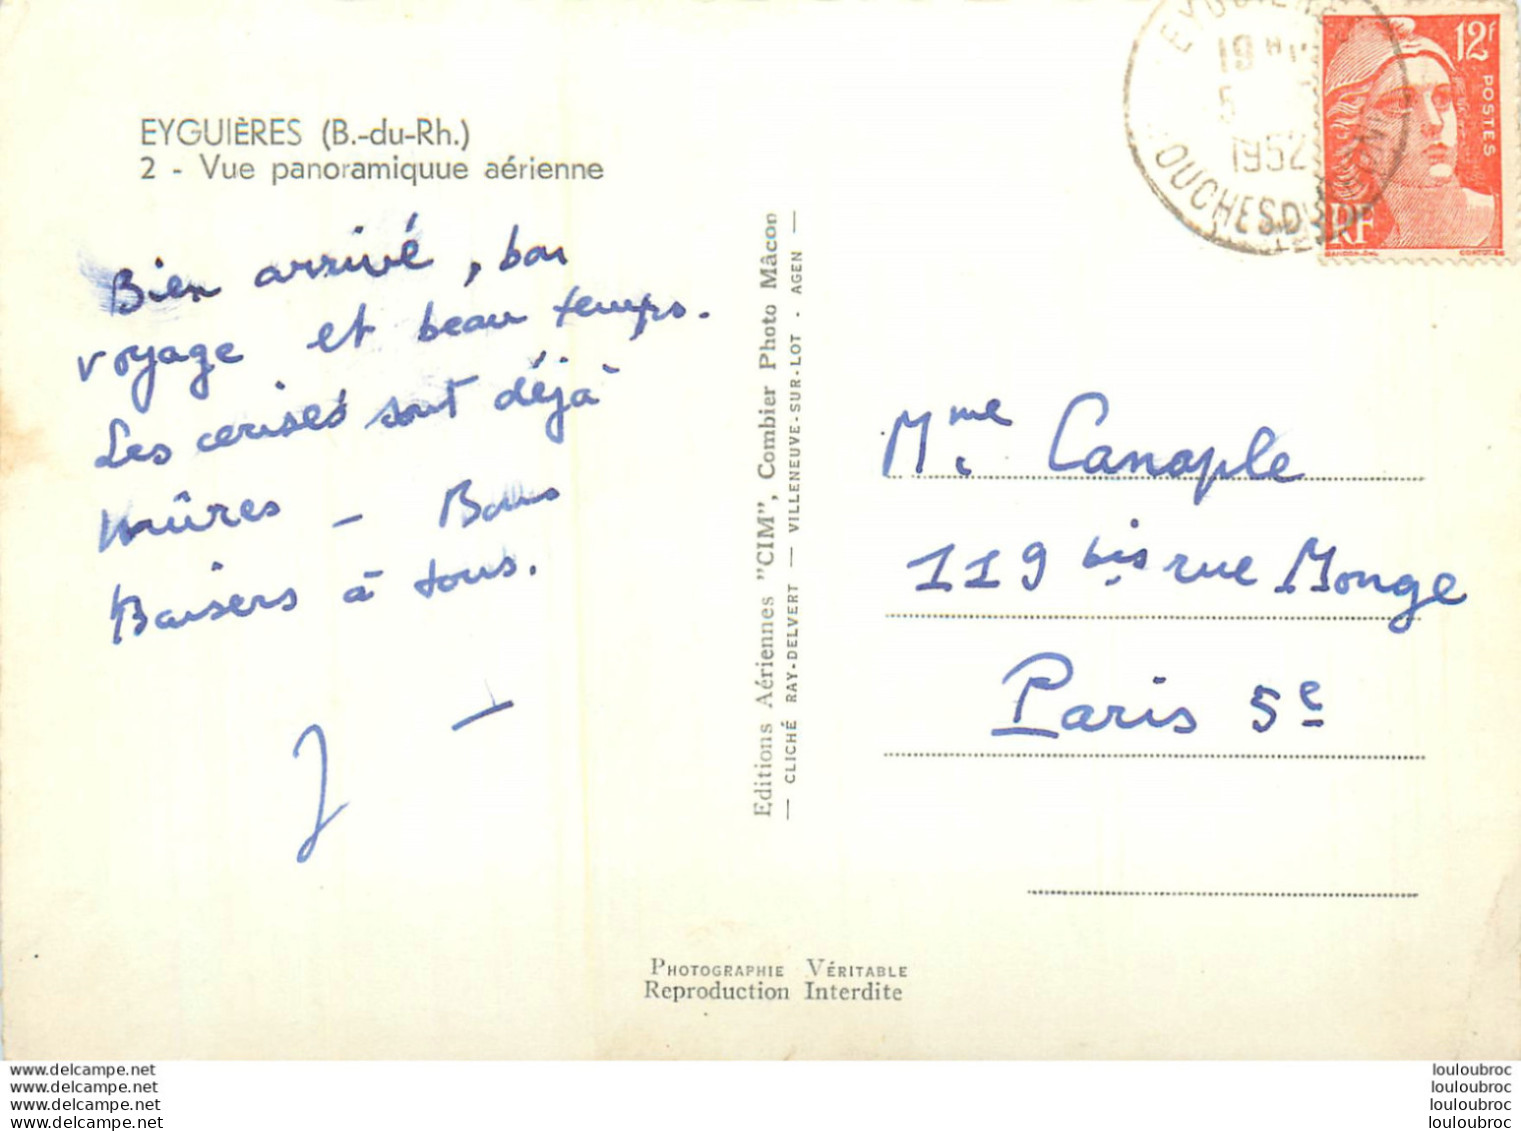 EYGUIÈRES (B.-du-Rh.)
2 - Vue panoramiquue aérienne
Bien arrivé, bon
voyage et beau temps.
Les cerises sont déjà
mûres - Bons
Baisers à tous.
J
Editions Aériennes "CIM", Combier Photo Mâcon
— CLICHÉ RAY-DELVERT — VILLENEUVE-SUR-LOT - AGEN —
EYGUIERES
19 H
5
1952
OUCHES DU
12F
POSTES
RF
GANDON
Mme Canaple
119 bis rue Monge
Paris 5e
PHOTOGRAPHIE VÉRITABLE
Reproduction Interdite
www.delcampe.net
www.delcampe.net
www.delcampe.net
www.delcampe.net
louloubroc
louloubroc
louloubroc
louloubroc